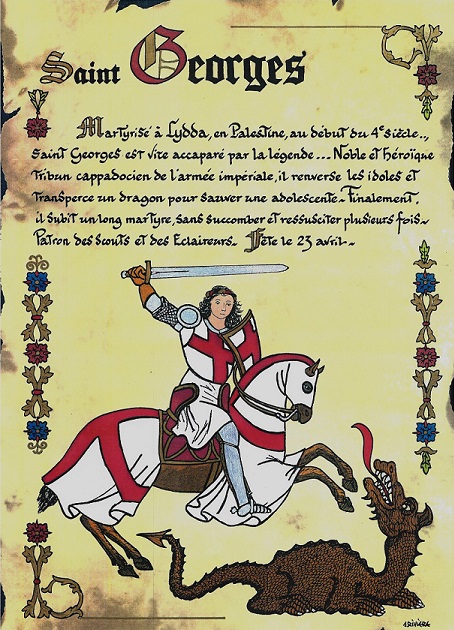 Saint Georges
Martyrisé à Lydda, en Palestine, au début du 4e siècle..,
Saint Georges est vite accaparé par la légende... Noble et héroïque
tribun cappadocien de l'armée impériale, il renverse les idoles et
transperce un dragon pour sauver une adolescente~ Finalement,
il subit un long martyre, sans succomber et ressusciter plusieurs fois~
Patron des Scouts et des Eclaireurs~ Fête le 23 avril~